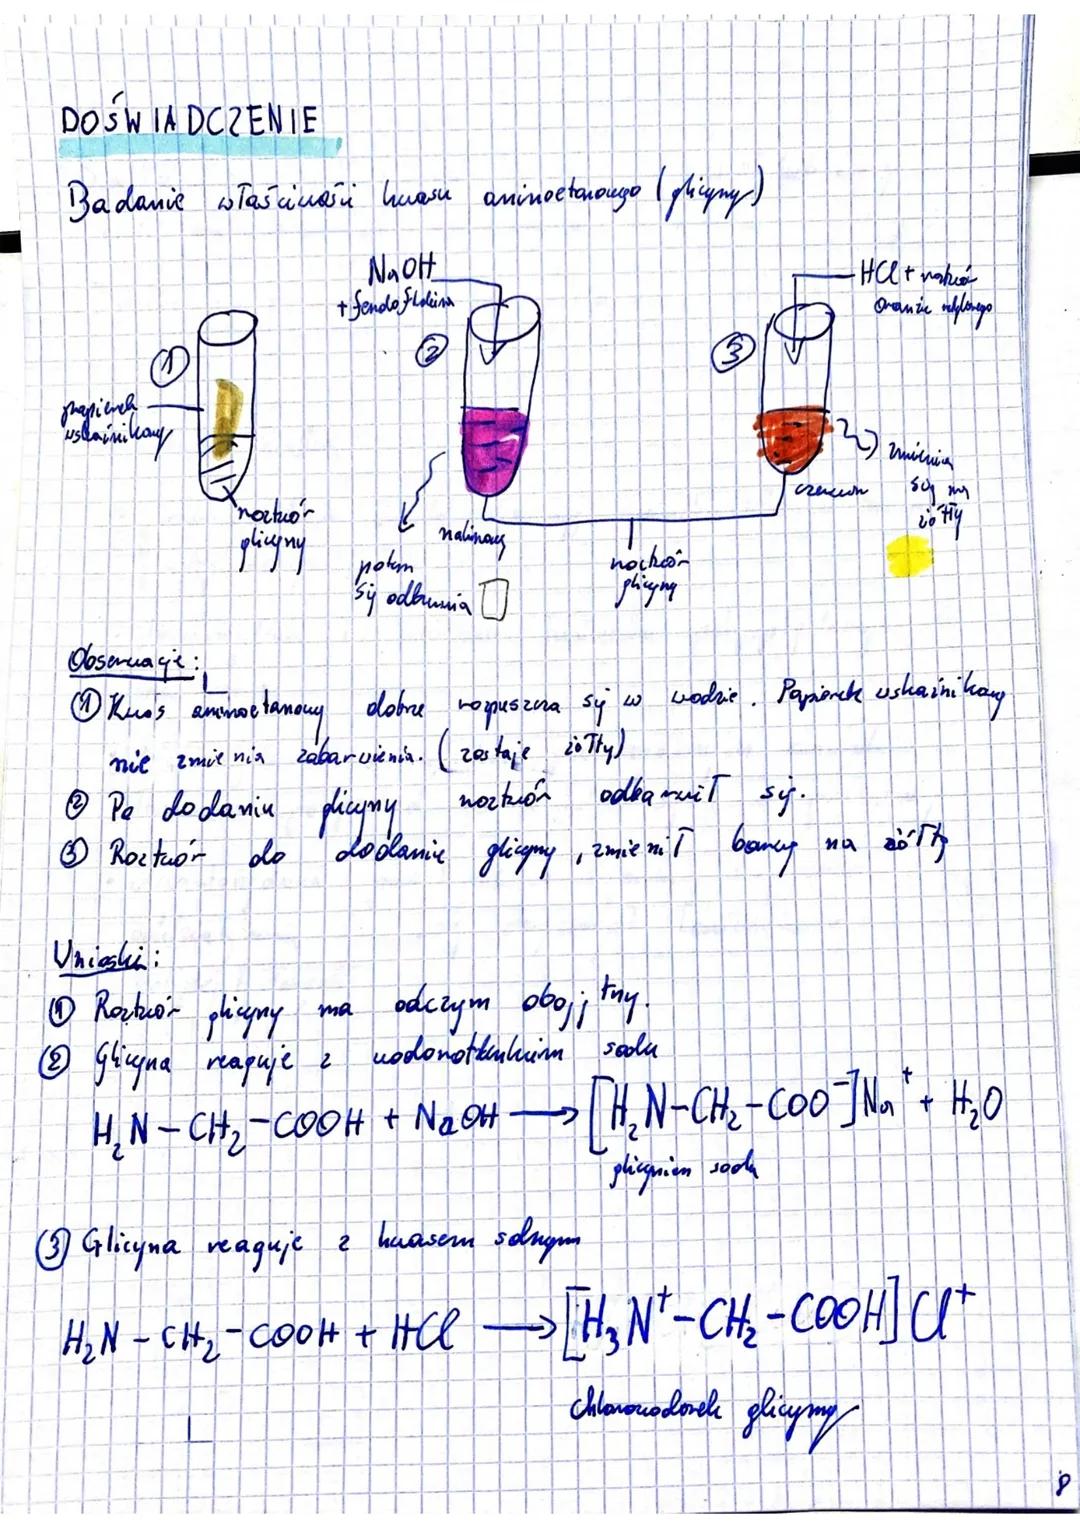 DOŚWIADCZENIE
Badanie właściwości kwasu aminoetanowego (glicyny)
NaOH
+ fenoloftaleina
HCl + roztwór
oranżu metylowego
1
2
3
papierek
wskaźnikowy
roztwór
glicyny
malinowy
potem
się odbarwia
roztwór
glicyny
czerwon
zmienia
się na
żółty
Obserwacje:
① Kwas aminoetanowy dobrze rozpuszcza się w wodzie. Papierek wskaźnikowy
nie zmienia zabarwienia. (zostaje żółty)
② Po dodaniu glicyny roztwór odbarwił się.
③ Roztwór do dodanie glicyny, zmienił barwę na żółtą
Wnioski:
① Roztwór glicyny ma odczym obojętny.
② Glicyna reaguje z wodorotlenkiem sodu
H₂N – CH₂ – COOH + NaOH ⟶ [H₂N–CH₂–COO⁻]Na⁺ + H₂O
glicynian sodu
③ Glicyna reaguje z kwasem solnym
H₂N – CH₂ – COOH + HCl ⟶ [H₃N⁺–CH₂–COOH] Cl⁺
chlorowodorek glicyny
8